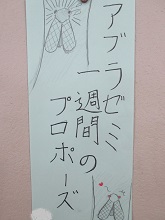 アブラゼミ
一週間の
プロポーズ